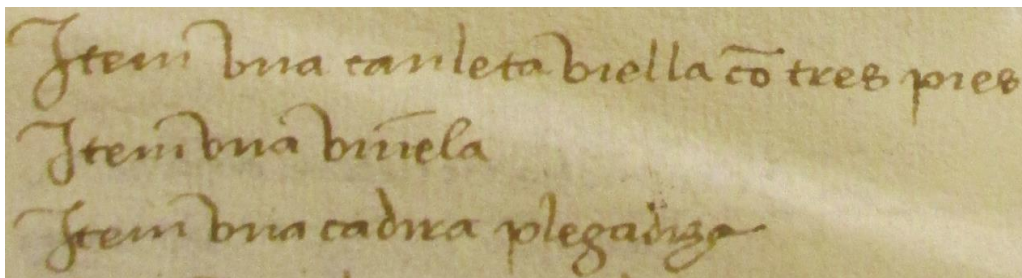 Item vna tauleta viella cō tres pies
Item vna viuēla
Item vna cadira plegadiza